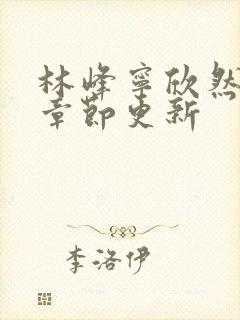 林峰宁欣然
章节更新
李洛伊